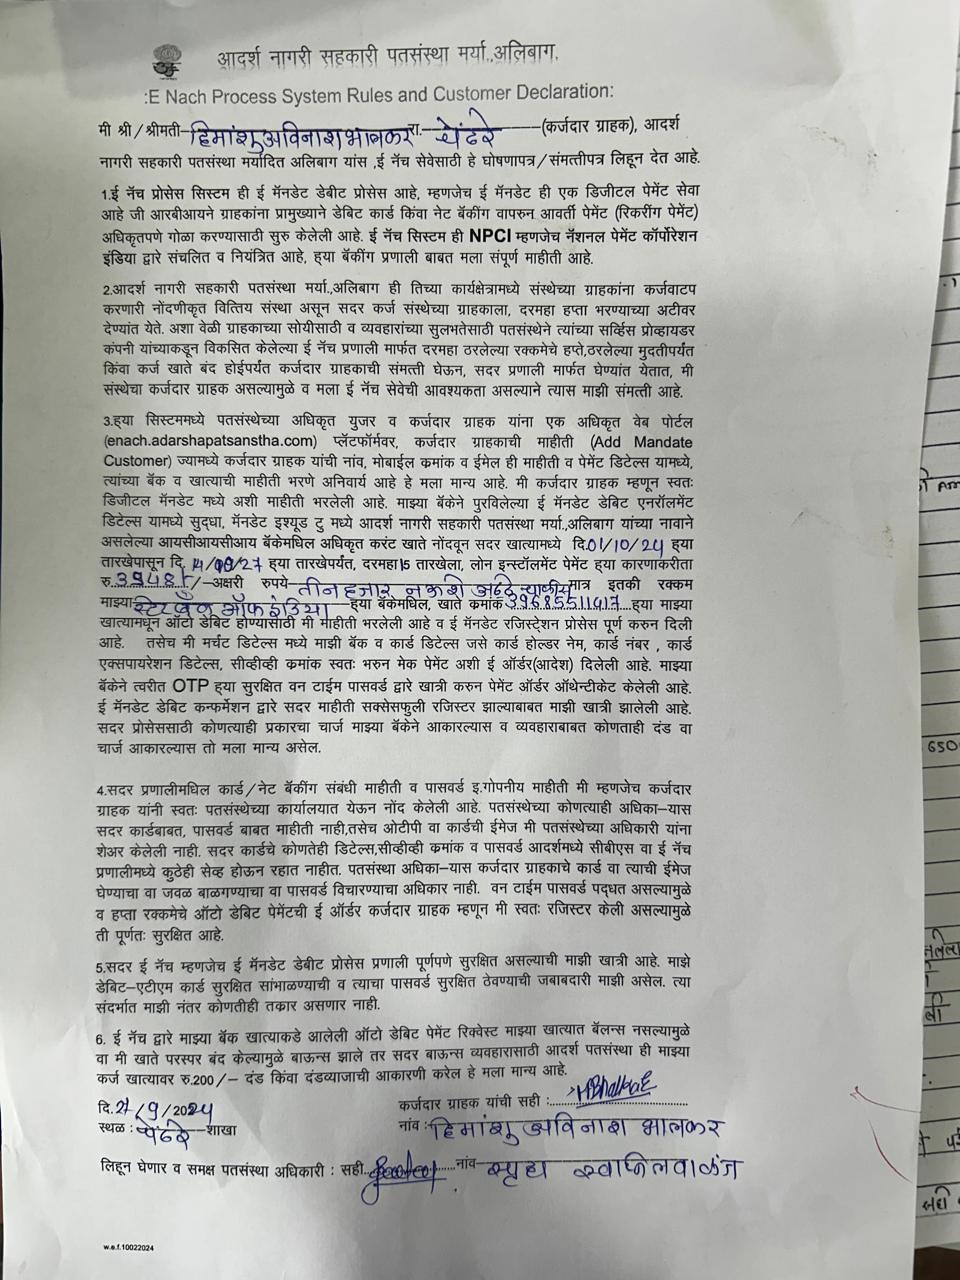 आदर्श नागरी सहकारी पतसंस्था मर्या.,अलिबाग.
:E Nach Process System Rules and Customer Declaration:
मी श्री/श्रीमती-हिमांशु अविनाश भालकर रा.-चेंढरे-(कर्जदार ग्राहक), आदर्श
नागरी सहकारी पतसंस्था मर्यादित अलिबाग यांस ,ई नॅच सेवेसाठी हे घोषणापत्र/संमत्तीपत्र लिहून देत आहे.
1.ई नॅच प्रोसेस सिस्टम ही ई मॅनडेट डेबीट प्रोसेस आहे, म्हणजेच ई मॅनडेट ही एक डिजीटल पेमेंट सेवा
आहे जी आरबीआयने ग्राहकांना प्रामुख्याने डेबिट कार्ड किंवा नेट बॅकींग वापरुन आवर्ती पेमेंट (रिकरींग पेमेंट)
अधिकृतपणे गोळा करण्यासाठी सुरु केलेली आहे. ई नॅच सिस्टम ही NPCI म्हणजेच नॅशनल पेमेंट कॉर्पोरेशन
इंडिया द्वारे संचलित व नियंत्रित आहे, ह्या बॅकींग प्रणाली बाबत मला संपूर्ण माहीती आहे.
2.आदर्श नागरी सहकारी पतसंस्था मर्या.,अलिबाग ही तिच्या कार्यक्षेत्रामध्ये संस्थेच्या ग्राहकांना कर्जवाटप
करणारी नोंदणीकृत वित्तिय संस्था असून सदर कर्ज संस्थेच्या ग्राहकाला, दरमहा हप्ता भरण्याच्या अटीवर
देण्यांत येते. अशा वेळी ग्राहकाच्या सोयीसाठी व व्यवहारांच्या सुलभतेसाठी पतसंस्थेने त्यांच्या सर्व्हिस प्रोव्हायडर
कंपनी यांच्याकडून विकसित केलेल्या ई नॅच प्रणाली मार्फत दरमहा ठरलेल्या रक्कमेचे हप्ते,ठरलेल्या मुदतीपर्यंत
किंवा कर्ज खाते बंद होईपर्यंत कर्जदार ग्राहकाची संमत्ती घेऊन, सदर प्रणाली मार्फत घेण्यांत येतात, मी
संस्थेचा कर्जदार ग्राहक असल्यामुळे व मला ई नॅच सेवेची आवश्यकता असल्याने त्यास माझी संमत्ती आहे.
3.ह्या सिस्टममध्ये पतसंस्थेच्या अधिकृत युजर व कर्जदार ग्राहक यांना एक अधिकृत वेब पोर्टल
(enach.adarshapatsanstha.com) प्लॅटफॉर्मवर, कर्जदार ग्राहकाची माहीती (Add Mandate
Customer) ज्यामध्ये कर्जदार ग्राहक यांची नांव, मोबाईल क्रमांक व ईमेल ही माहीती व पेमेंट डिटेल्स यामध्ये,
त्यांच्या बँक व खात्याची माहीती भरणे अनिवार्य आहे हे मला मान्य आहे. मी कर्जदार ग्राहक म्हणून स्वतः
डिजीटल मॅनडेट मध्ये अशी माहीती भरलेली आहे. माझ्या बॅकेने पुरविलेल्या ई मॅनडेट डेबिट एनरॉलमेंट
डिटेल्स यामध्ये सुद्धा, मॅनडेट इश्यूड टु मध्ये आदर्श नागरी सहकारी पतसंस्था मर्या.,अलिबाग यांच्या नावाने
असलेल्या आयसीआयसीआय बॅकेमधिल अधिकृत करंट खाते नोंदवून सदर खात्यामध्ये दि.01/10/24 ह्या
तारखेपासून दि. ह्या तारखेपर्यंत, दरमहा 15 तारखेला, लोन इन्स्टॉलमेंट पेमेंट ह्या कारणाकरीता
रु.3948/-अक्षरी रुपये-तीन हजार नऊशे अठ्ठेचाळीस मात्र इतकी रक्कम
माझ्या स्टेट बँक ऑफ इंडिया ह्या बॅकेमधिल, खाते क्रमांक 39685511417 ह्या माझ्या
खात्यामधून ऑटो डेबिट होण्यासाठी मी माहीती भरलेली आहे व ई मॅनडेट रजिस्ट्रेशन प्रोसेस पूर्ण करुन दिली
आहे. तसेच मी मर्चंट डिटेल्स मध्ये माझी बॅक व कार्ड डिटेल्स जसे कार्ड होल्डर नेम, कार्ड नंबर , कार्ड
एक्सपायरेशन डिटेल्स, सीव्हीव्ही क्रमांक स्वतः भरुन मेक पेमेंट अशी ई ऑर्डर(आदेश) दिलेली आहे. माझ्या
बॅकेने त्वरीत OTP ह्या सुरक्षित वन टाईम पासवर्ड द्वारे खात्री करुन पेमेंट ऑर्डर ऑथेन्टीकेट केलेली आहे.
ई मॅनडेट डेबिट कन्फर्मेशन द्वारे सदर माहीती सक्सेसफुली रजिस्टर झाल्याबाबत माझी खात्री झालेली आहे.
सदर प्रोसेससाठी कोणत्याही प्रकारचा चार्ज माझ्या बॅकेने आकारल्यास व व्यवहाराबाबत कोणताही दंड वा
चार्ज आकारल्यास तो मला मान्य असेल.
4.सदर प्रणालीमधिल कार्ड/नेट बॅकींग संबंधी माहीती व पासवर्ड इ.गोपनीय माहीती मी म्हणजेच कर्जदार
ग्राहक यांनी स्वतः पतसंस्थेच्या कार्यालयात येऊन नोंद केलेली आहे. पतसंस्थेच्या कोणत्याही अधिका-यास
सदर कार्डबाबत, पासवर्ड बाबत माहीती नाही,तसेच ओटीपी वा कार्डची ईमेज मी पतसंस्थेच्या अधिकारी यांना
शेअर केलेली नाही. सदर कार्डचे कोणतेही डिटेल्स,सीव्हीव्ही क्रमांक व पासवर्ड आदर्शमध्ये सीबीएस वा ई नॅच
प्रणालीमध्ये कुठेही सेव्ह होऊन रहात नाहीत. पतसंस्था अधिका-यास कर्जदार ग्राहकाचे कार्ड वा त्याची ईमेज
घेण्याचा वा जवळ बाळगण्याचा वा पासवर्ड विचारण्याचा अधिकार नाही. वन टाईम पासवर्ड पद्धत असल्यामुळे
व हप्ता रक्कमेचे ऑटो डेबिट पेमेंटची ई ऑर्डर कर्जदार ग्राहक म्हणून मी स्वतः रजिस्टर केली असल्यामुळे
ती पूर्णतः सुरक्षित आहे.
5.सदर ई नॅच म्हणजेच ई मॅनडेट डेबीट प्रोसेस प्रणाली पूर्णपणे सुरक्षित असल्याची माझी खात्री आहे. माझे
डेबिट-एटीएम कार्ड सुरक्षित सांभाळण्याची व त्याचा पासवर्ड सुरक्षित ठेवण्याची जबाबदारी माझी असेल. त्या
संदर्भात माझी नंतर कोणतीही तक्रार असणार नाही.
6. ई नॅच द्वारे माझ्या बॅक खात्याकडे आलेली ऑटो डेबिट पेमेंट रिक्वेस्ट माझ्या खात्यात बॅलन्स नसल्यामुळे
वा मी खाते परस्पर बंद केल्यामुळे बाऊन्स झाले तर सदर बाऊन्स व्यवहारासाठी आदर्श पतसंस्था ही माझ्या
कर्ज खात्यावर रु.200/- दंड किंवा दंडव्याजाची आकारणी करेल हे मला मान्य आहे.
दि. /9/2024 कर्जदार ग्राहक यांची सही : HBhalkar
स्थळ : चेंढरे-शाखा नांव :-हिमांशु अविनाश भालकर
लिहून घेणार व समक्ष पतसंस्था अधिकारी : सही नांव-स्पृहा स्वाप्निल वाळंज
w.e.f.10022024
650